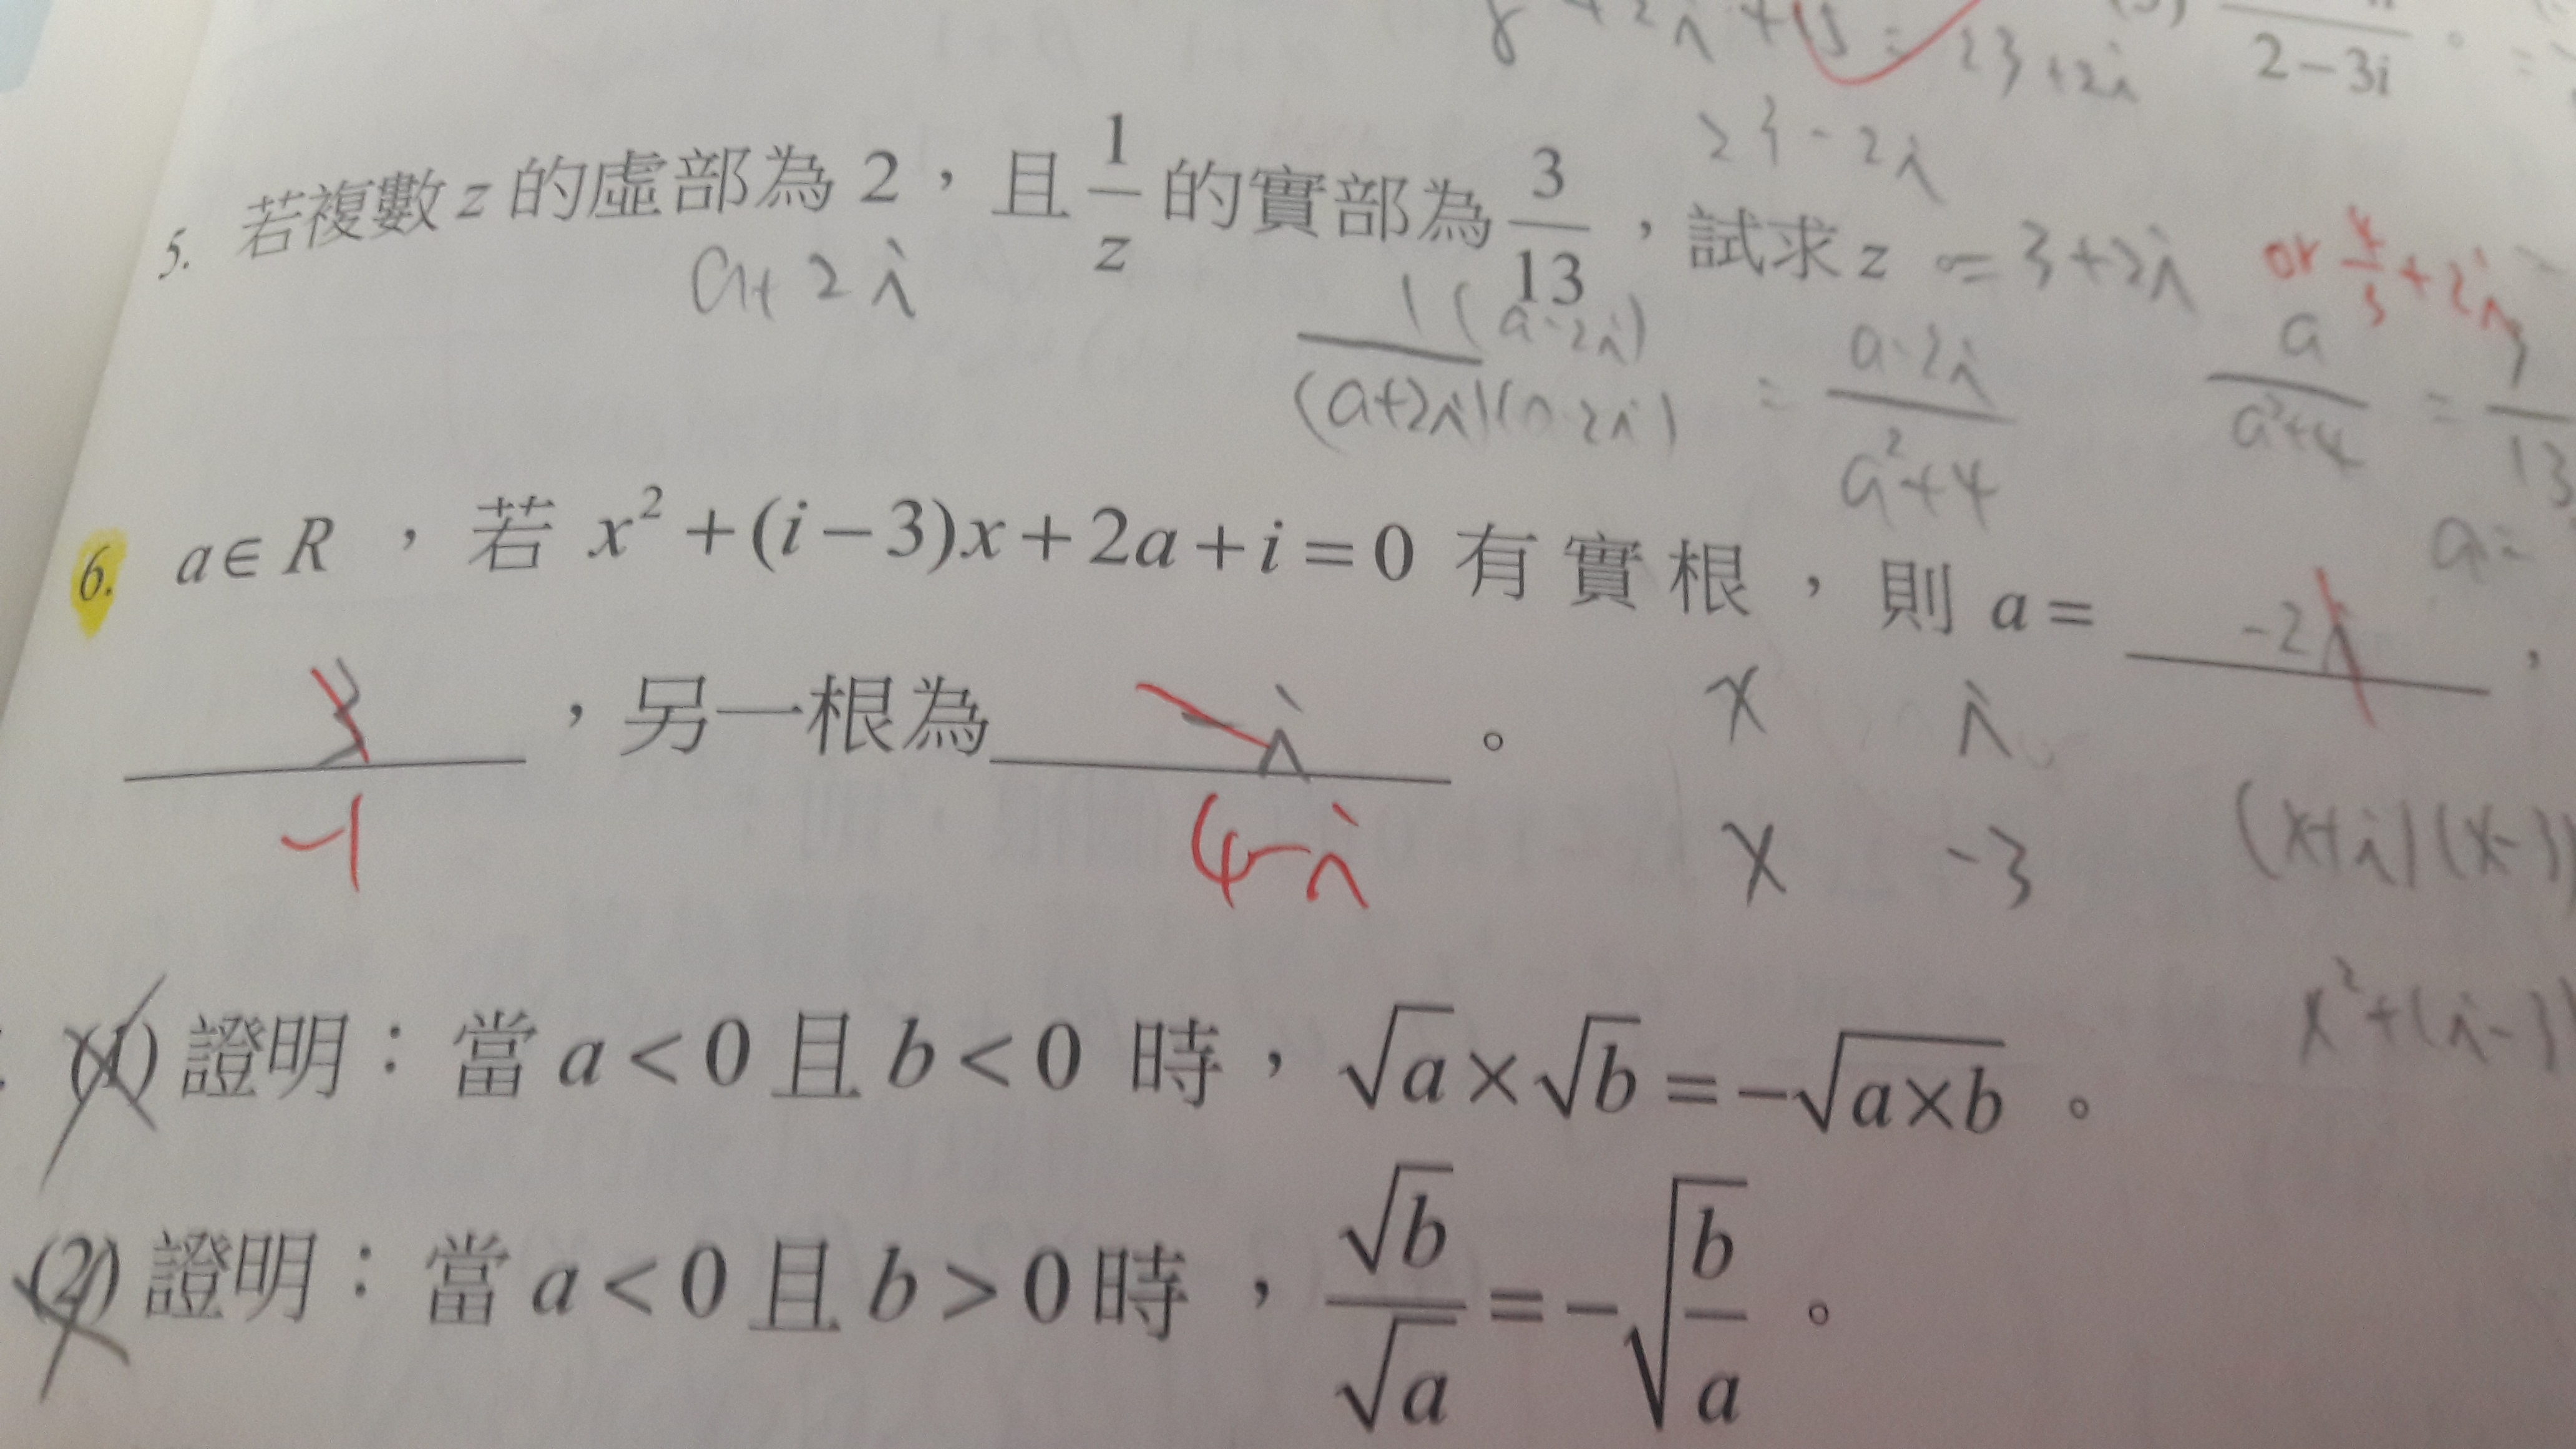 8+2i+15=23+2i
2-3i
23-2i
5. 若複數z的虛部為2，且1/z的實部為3/13，試求z = 3+2i or 4/3+2i
a+2i
1(a-2i)/(a+2i)(a-2i) = a-2i/a²+4
a/a²+4 = 3/13
a=
6. a∈R ，若 x²+(i-3)x+2a+i=0 有實根，則 a= -2i ，
3 ，另一根為 -i 。
-1
4-i
x i
x -3
(x+i)(x-3)
x²+(i-3)
(1) 證明：當 a<0 且 b<0 時，√a×√b=-√(a×b) 。
(2) 證明：當 a<0 且 b>0 時，√b/√a=-√(b/a) 。